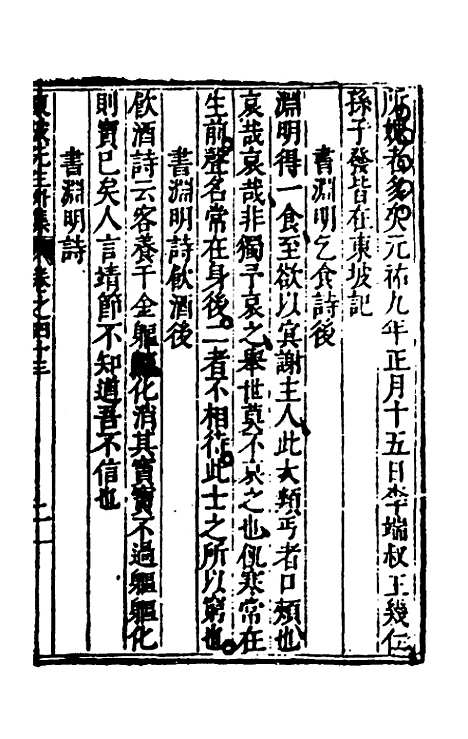 所媿者多矣元祐九年正月十五日李端叔王幾仁
孫子發皆在東坡記
書淵明乞食詩後
淵明得一食至欲以冥謝主人此大類丐者口頰也
哀哉哀哉非獨予哀之舉世莫不哀之也飢寒常在
生前聲名常在身後二者不相待此士之所以窮也
書淵明詩飲酒後
飲酒詩云客養千金軀軀化消其寶寶不過軀軀化
則寶已矣人言靖節不知道吾不信也
書淵明詩
東坡先生外集卷之四十三